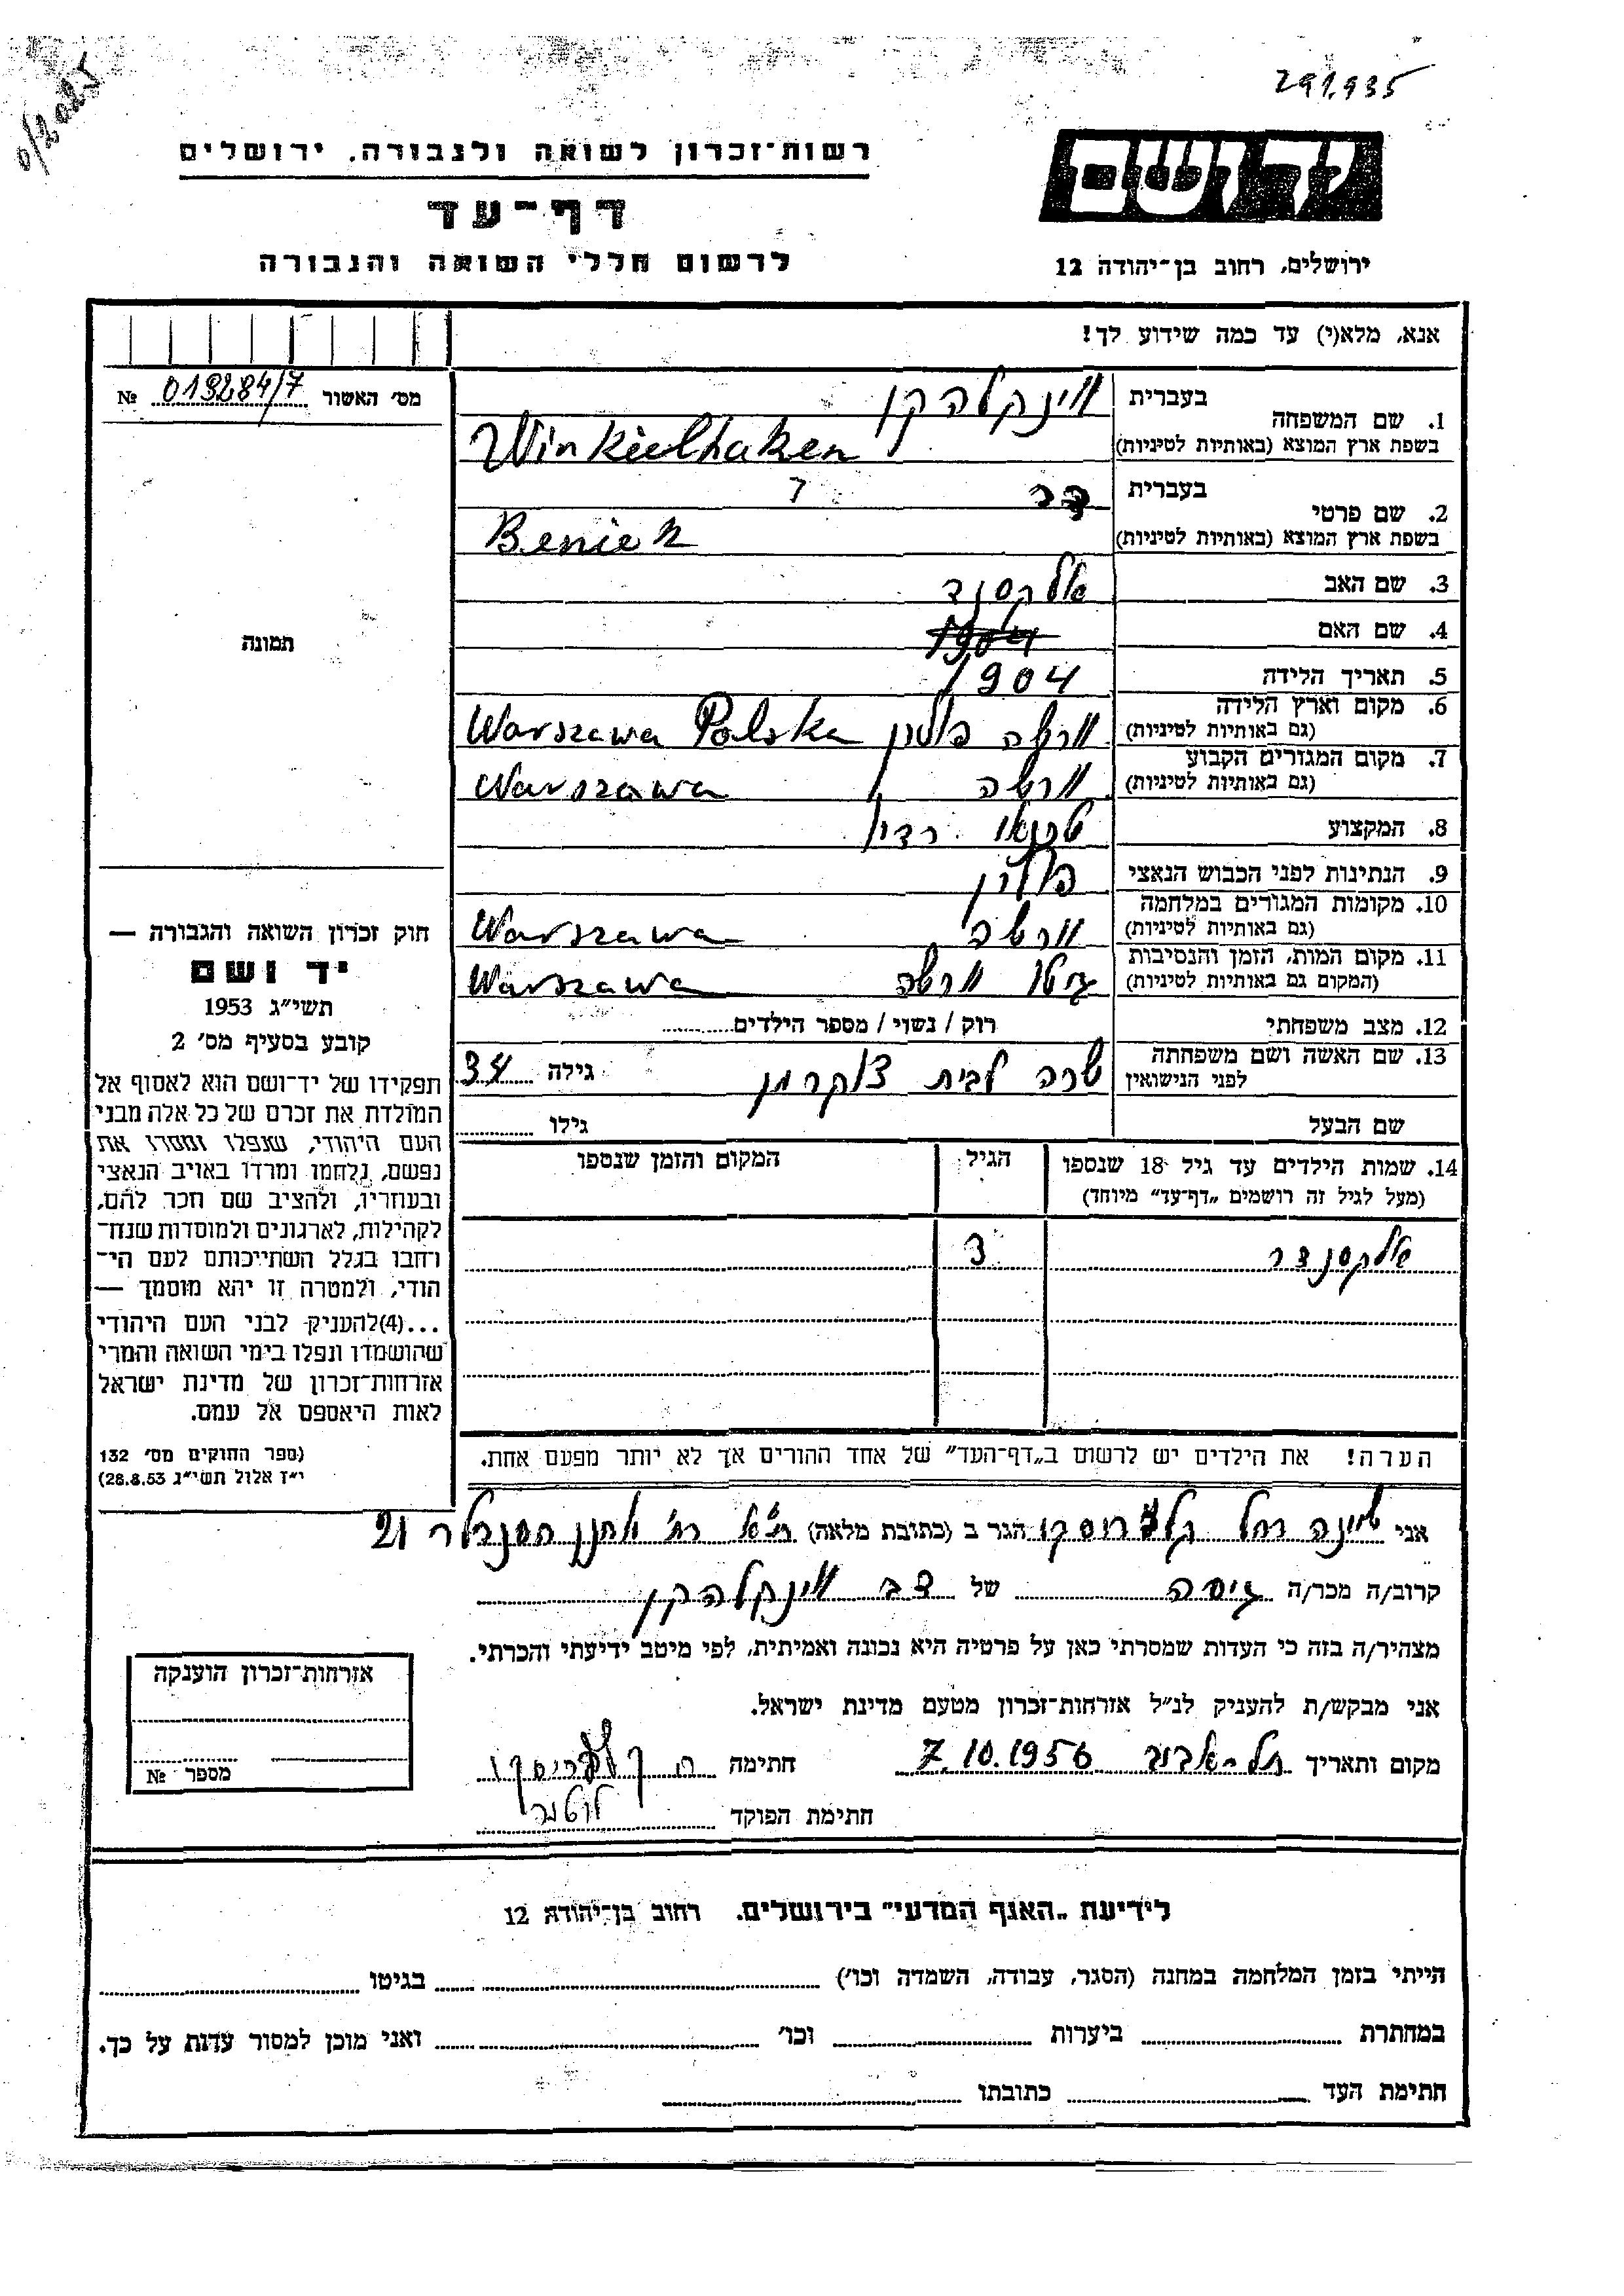 291.935
יד ושם
ירושלים, רחוב בן־יהודה 12
רשות־זכרון לשואה ולגבורה, ירושלים
דף־עד
לרשום חללי השואה והגבורה
אנא, מלא(י) עד כמה שידוע לך!
מס׳ האשור 019284/7 №
תמונה
חוק זכרון השואה והגבורה —
יד ושם
תשי״ג 1953
קובע בסעיף מס׳ 2
תפקידו של יד־ושם הוא לאסוף אל
המולדת את זכרם של כל אלה מבני
העם היהודי, שנפלו ומסרו את
נפשם, נלחמו ומרדו באויב הנאצי
ובעוזריו, ולהציב שם וזכר להם,
לקהילות, לארגונים ולמוסדות שנח־
רחבו בגלל השתייכותם לעם הי־
הודי, ולמטרה זו יהא מוסמך —
...(4)להעניק לבני העם היהודי
שהושמדו ונפלו בימי השואה והמרי
אזרחות־זכרון של מדינת ישראל
לאות היאספם אל עמם.
(ספר החוקים מס׳ 132
י״ז אלול תשי״ג 28.8.53)
1. שם המשפחה בעברית ווינקלהקן
בשפת ארץ המוצא (באותיות לטיניות) Winkielhaken
2. שם פרטי בעברית
בשפת ארץ המוצא (באותיות לטיניות) Beniek
3. שם האב אלכסנד
4. שם האם
5. תאריך הלידה 1904
6. מקום וארץ הלידה (גם באותיות לטיניות) וורשה פולין Warszawa Polska
7. מקום המגורים הקבוע (גם באותיות לטיניות) וורשה Warszawa
8. המקצוע טכנאי רדיו
9. הנתינות לפני הכבוש הנאצי פולין
10. מקומות המגורים במלחמה (גם באותיות לטיניות) וורשה Warszawa
11. מקום המות, הזמן והנסיבות (המקום גם באותיות לטיניות) גיטו וורשה Warszawa
12. מצב משפחתי רווק / נשוי / מספר הילדים
13. שם האשה ושם משפחתה לפני הנישואין שרה לבית צוקרמן גילה 34
שם הבעל גילו
14. שמות הילדים עד גיל 18 שנספו הגיל המקום והזמן שנספו
(מעל לגיל זה רושמים „דף־עד״ מיוחד)
אלכסנדר 3
הערה! את הילדים יש לרשום ב„דף־העד״ של אחד ההורים אך לא יותר מפעם אחת.
אני רחל הגר ב (כתובת מלאה) ת״א רח׳ הסנדלר 21
קרוב/ה מכר/ה גיסה של ווינקלהקן
מצהיר/ה בזה כי העדות שמסרתי כאן על פרטיה היא נכונה ואמיתית, לפי מיטב ידיעתי והכרתי.
אני מבקש/ת להעניק לנ״ל אזרחות־זכרון מטעם מדינת ישראל.
מקום ותאריך תל־אביב 7.10.1956 חתימה
חתימת הפוקד
אזרחות־זכרון הוענקה
מספר №
לידיעת „האגף המדעי״ בירושלים. רחוב בן־יהודה 12
הייתי בזמן המלחמה במחנה (הסגר, עבודה, השמדה וכו׳) בגיטו
במחתרת ביערות וכו׳ ואני מוכן למסור עדות על כך.
חתימת העד כתובתו